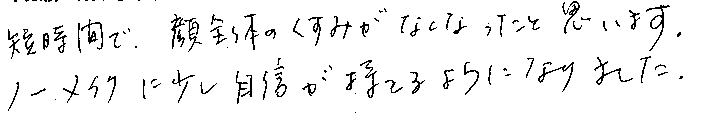 短時間で、顔全体のくすみがなくなったと思います。
ノーメイクに少し自信が持てるようになりました。